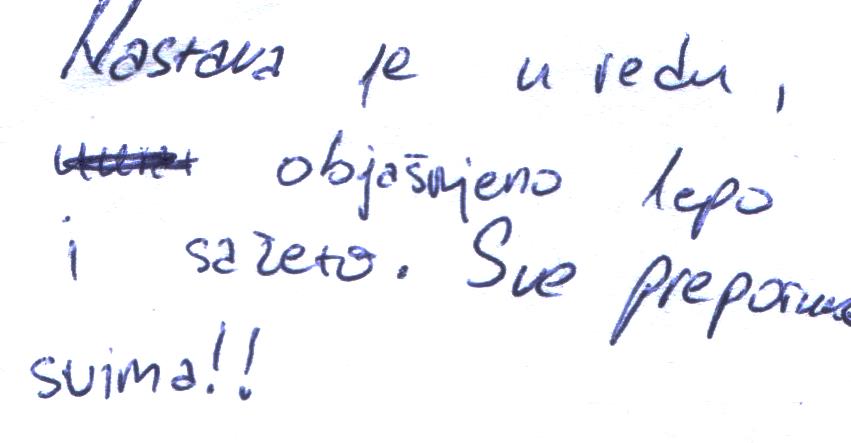 Nastava je u redu,
objašnjeno lepo
i sažeto. Sve
svima!!